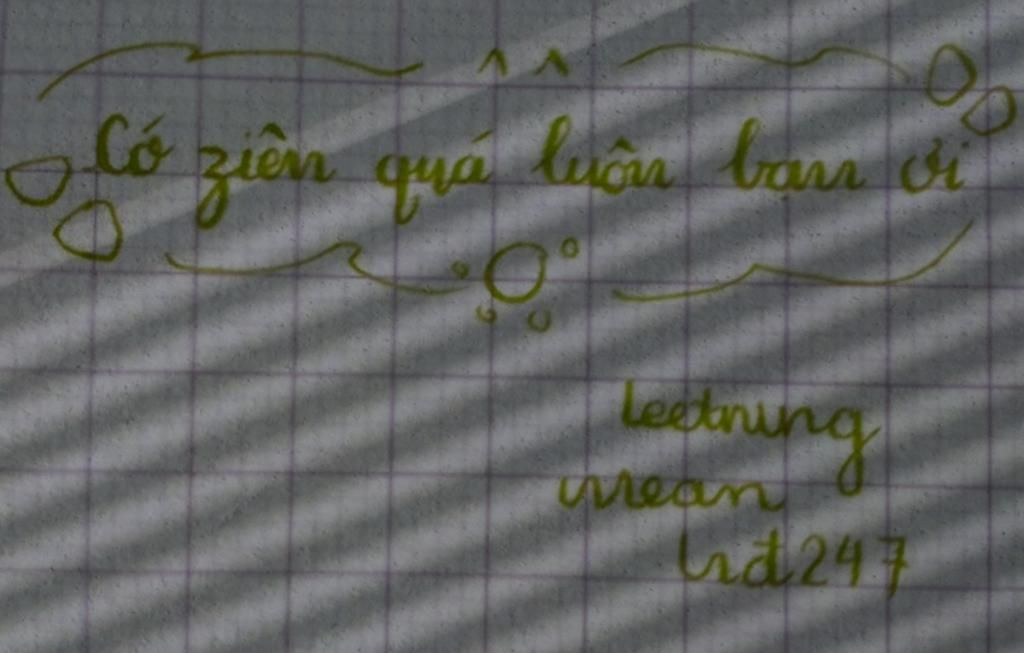 Có ziên quá luôn bạn ơi
Leetnung
mean
lrđ247